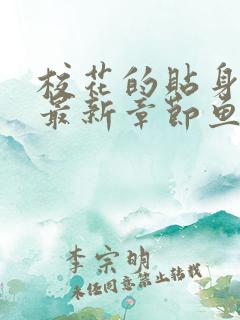 校花的贴身
最新章节鱼
李宗明
未经同意禁止转载